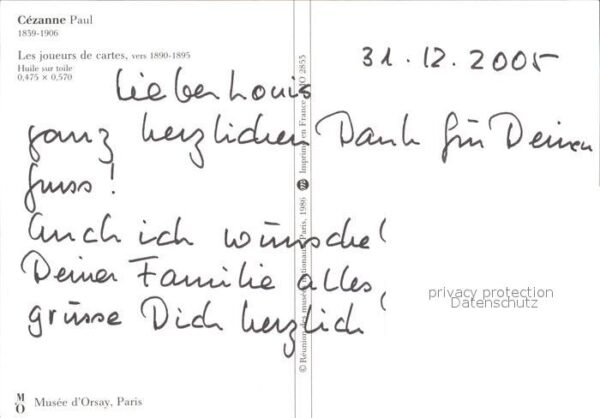 Cézanne Paul
1839-1906
Les joueurs de cartes, vers 1890-1895
Huile sur toile
0,475 × 0,570
31.12.2005
Lieber Louis
ganz herzlichen Dank für Deinen
Gruss!
Auch ich wünsche
Deiner Familie alles,
grüsse Dich herzlich!
© Réunion des musées nationaux, Paris, 1986 Imprimé en France MO 2855
privacy protection
Datenschutz
M'O Musée d'Orsay, Paris